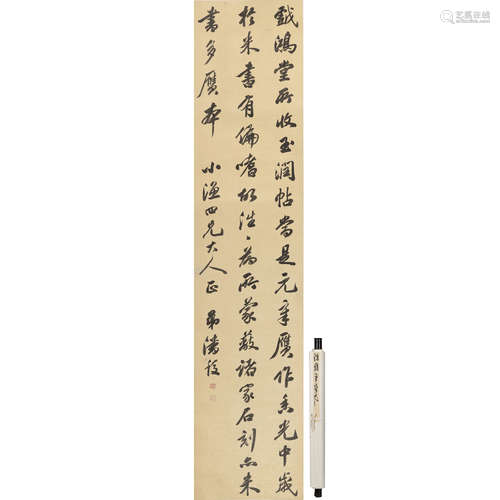 戲鴻堂所收玉潤帖當是元章贋作香光中歲
於米書有偏嗜故往〻為所蒙蔽諸家石刻亦米
書多贋本 小漁四兄大人正 弟潘
艺狐在线